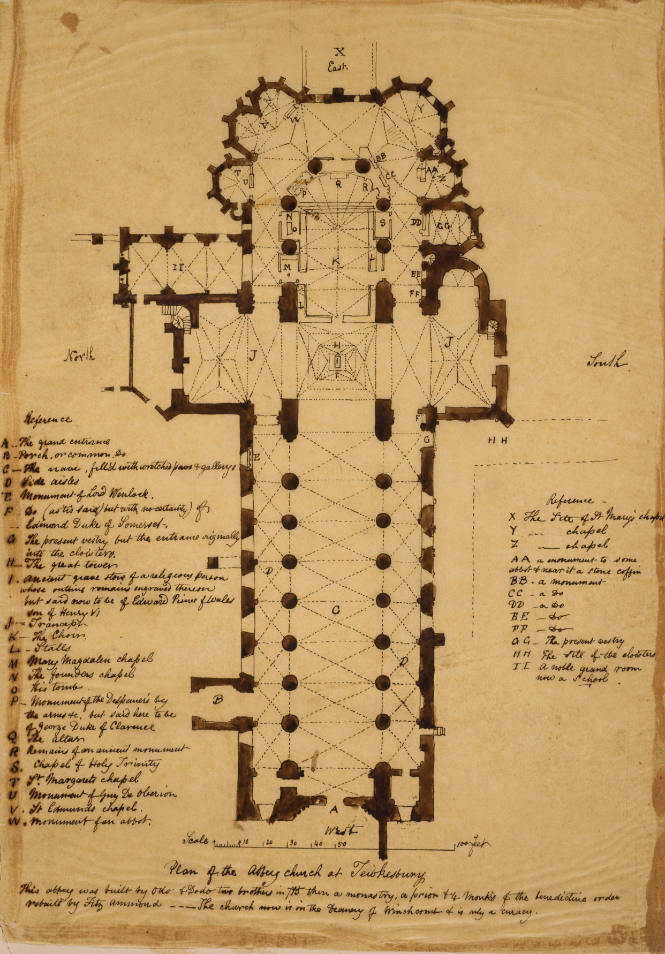 X
East
North
South
Reference
A - The grand entrance
B - Porch, or common, Do
C - The nave, fill'd with wretched pews & gallerys
D Side aisles
E Monument of Lord Wenlock.
F Do (as tis said but with no certainty) of
-- Edmond Duke of Somerset.
G The present vestry but the entrance originally
into the cloisters.
H - The great tower
I. Ancient grave stone of a religious person
whose outline remains engraved thereon
but said now to be of Edward Prince of Wales
son of Henry VI
J - Transcept
K - The Choir
L - Stalls
M Mary Magdalen chapel
N The founders chapel
O His tomb
P - Monument of the Despencers by
the arms &c, but said here to be
of George Duke of Clarence
Q The altar
R Remains of an ancient monument
S. chapel of Holy Trinity
T St. Margarets chapel
U Monument of Guy De Oberion
V. St Edmunds chapel.
W. monument of an abbot.
Reference -
X The Site of St Mary's chapel
Y -- chapel
Z -- chapel
AA a monument to some
abbot & near it a stone coffin
BB - a monument
CC - a Do
DD - a Do
EE - Do
FF - Do
GG - The present vestry
HH The site of the cloisters
II A noble grand room
now a School.
A
West
Scale 10 20 30 40 50 100 feet
Plan of the Abbey church at Tewkesbury
This abbey was built by Odo & Dodo two brothers in 715 then a monastry, a prior & 4 Monks of the benedictine order
rebuilt by Fitz --- The church now is in the Deanery of Winchcomb & is only a curacy.